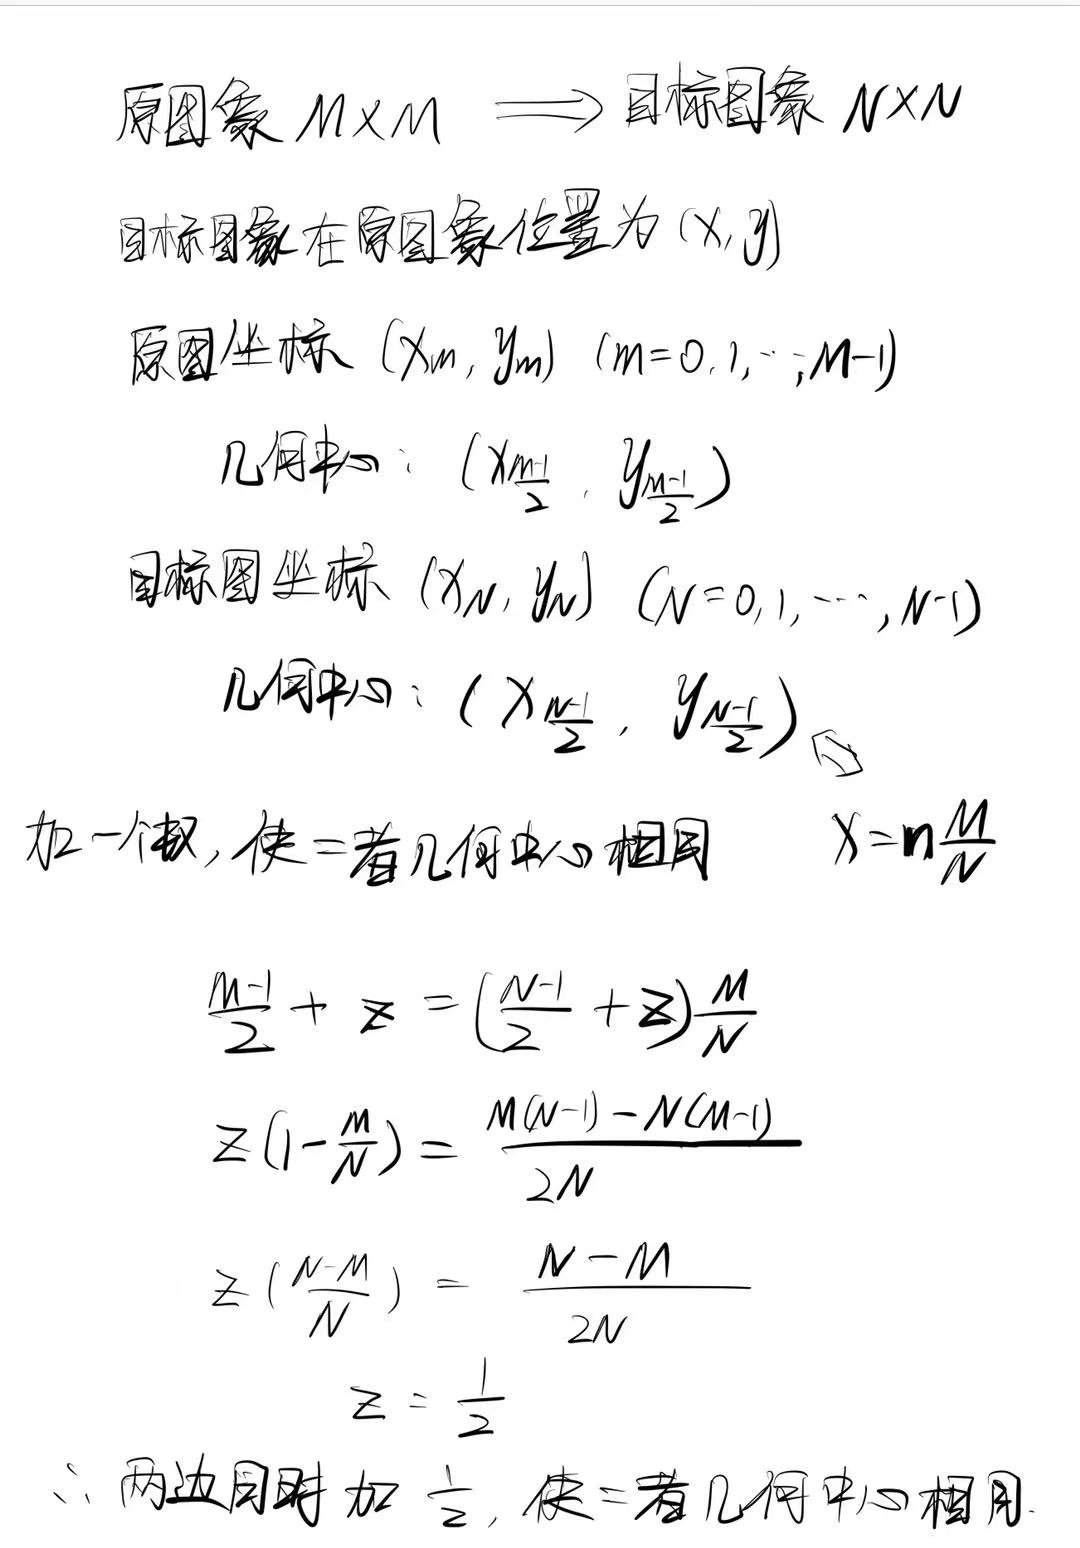 原图象 M×M ⟹ 目标图象 N×N
目标图象在原图象位置为 (x, y)
原图坐标 (xₘ, yₘ) (m=0,1,…,M-1)
几何中心: (x_{\frac{M-1}{2}}, y_{\frac{M-1}{2}})
目标图坐标 (x_N, y_N) (N=0,1,…,N-1)
几何中心: (x_{\frac{N-1}{2}}, y_{\frac{N-1}{2}})
加一个数, 使二者几何中心相同 x=n\frac{M}{N}
\frac{M-1}{2} + z = (\frac{N-1}{2} + z)\frac{M}{N}
z(1-\frac{M}{N}) = \frac{M(N-1)-N(M-1)}{2N}
z(\frac{N-M}{N}) = \frac{N-M}{2N}
z = \frac{1}{2}
∴ 两边同时加 \frac{1}{2}, 使二者几何中心相同.